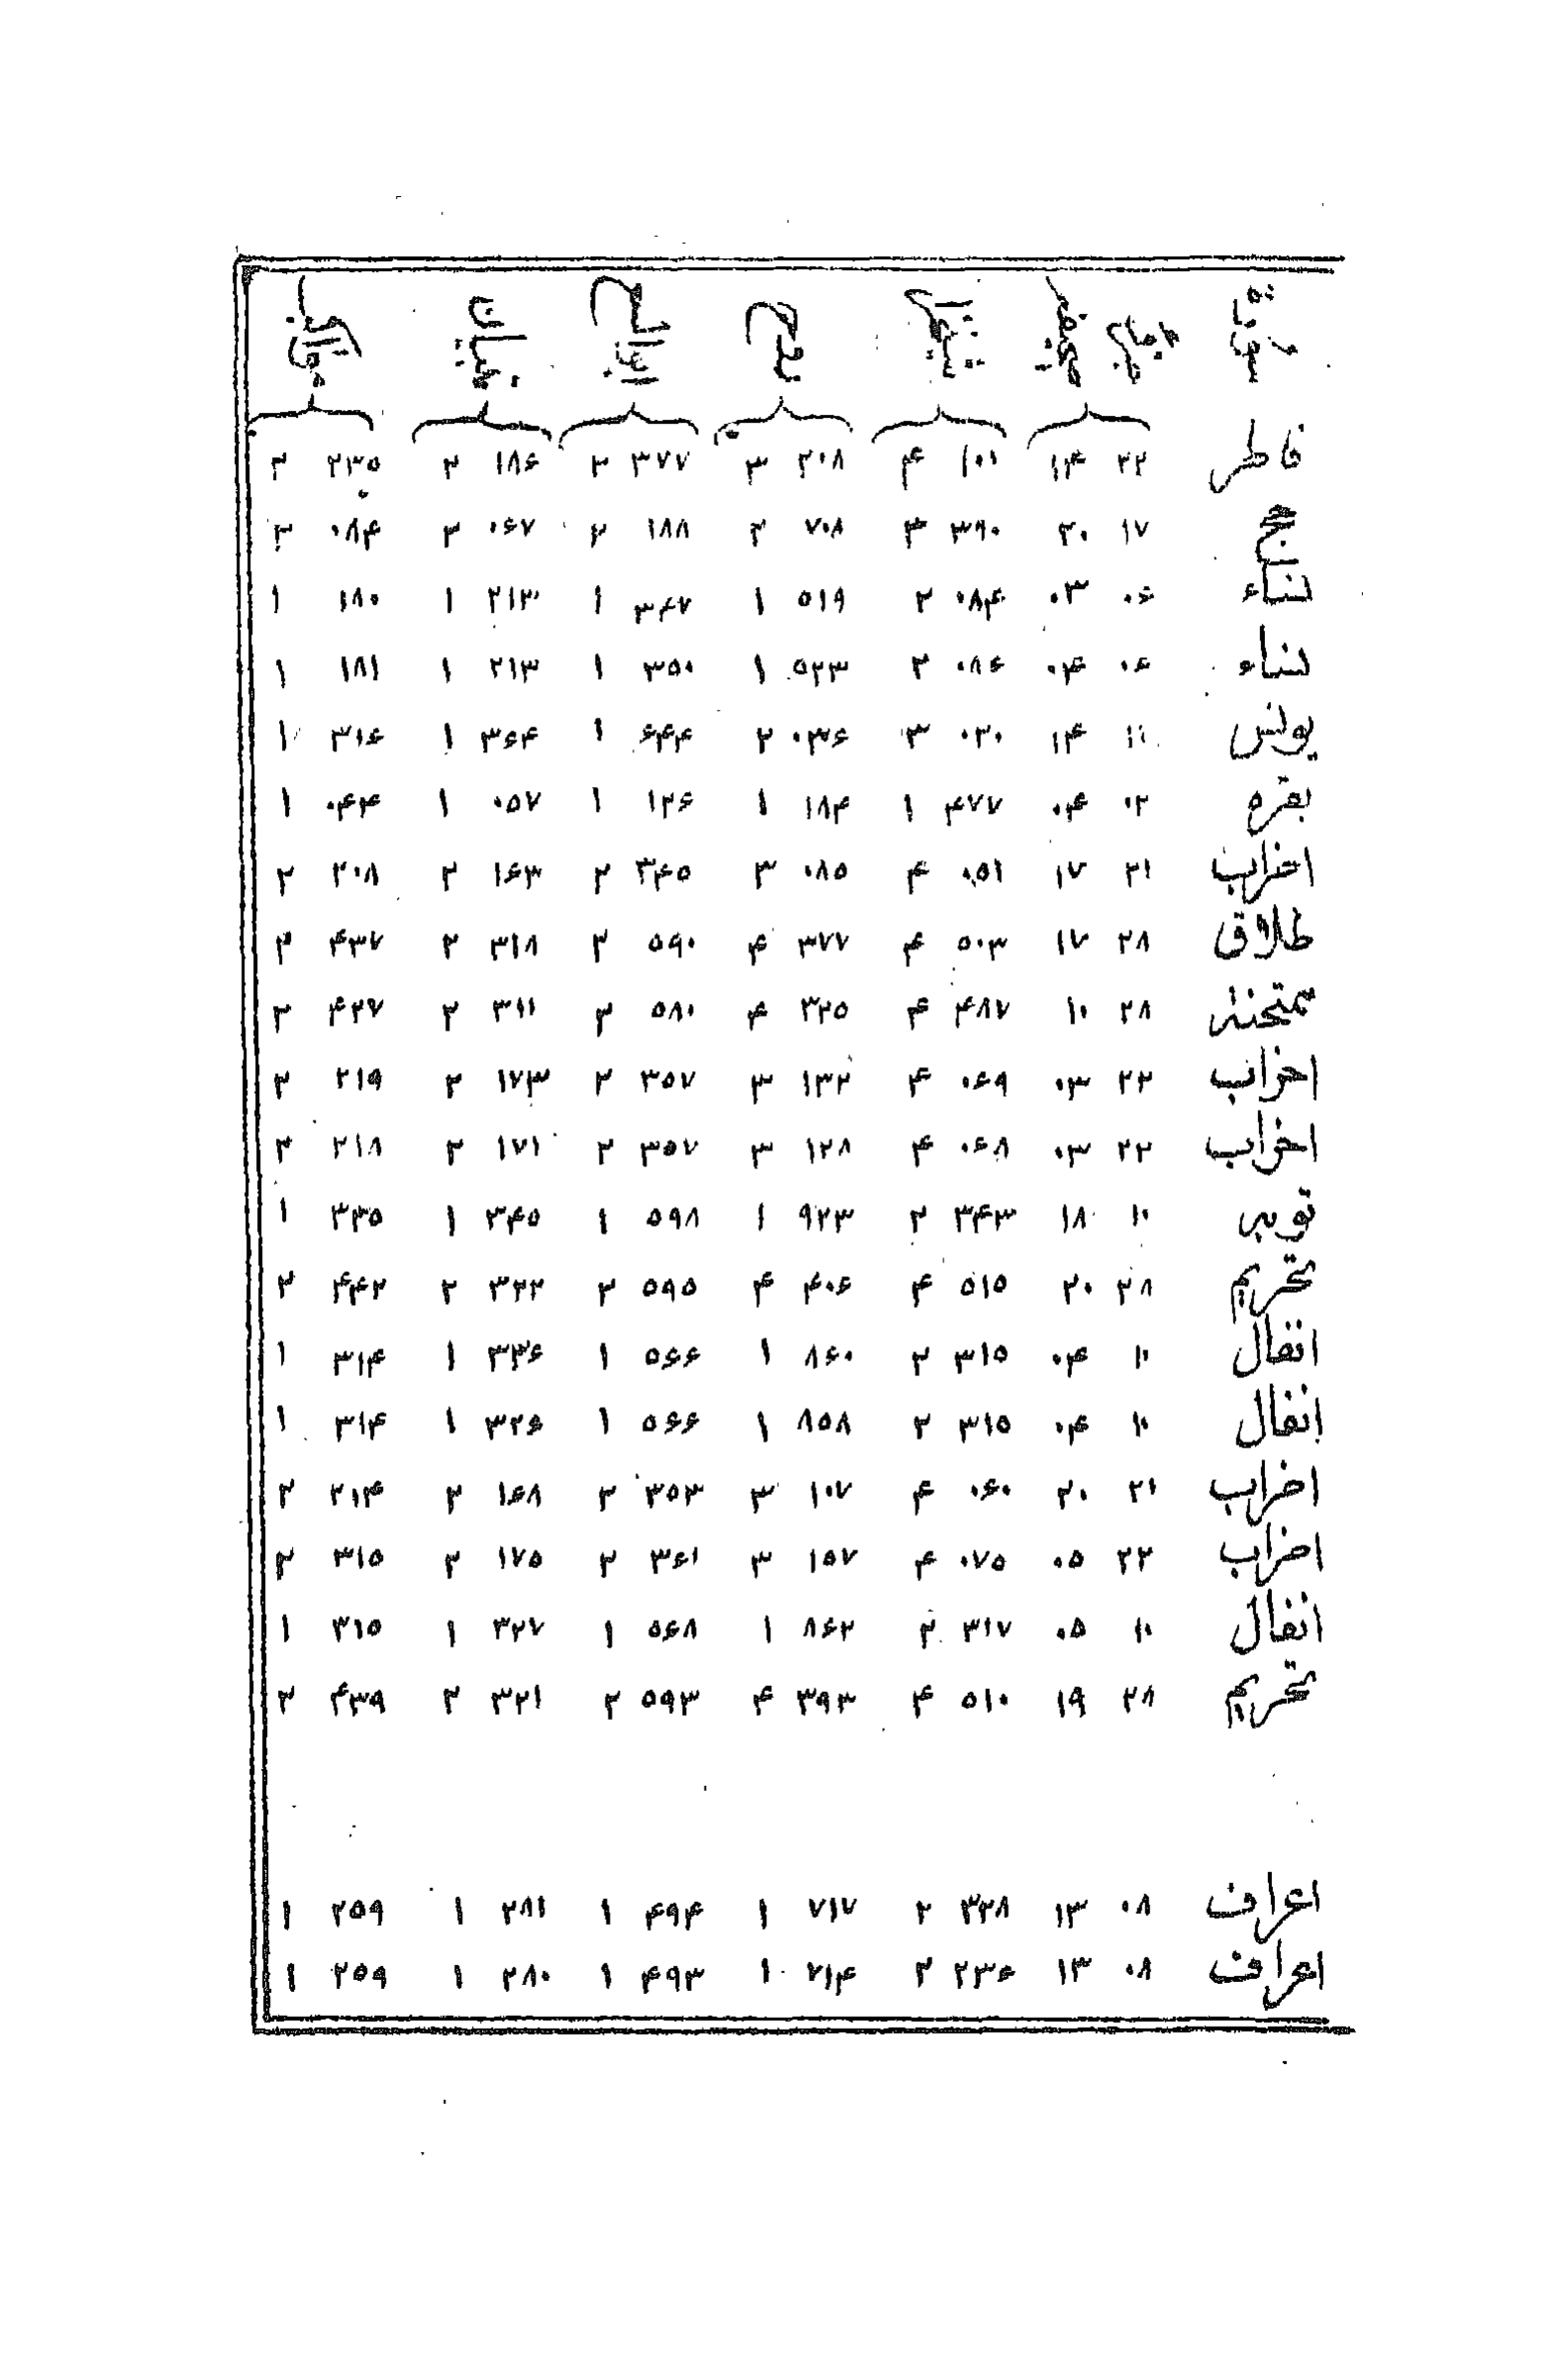 فاطر ۲۲ ۱۴ ۱۰۱ ۴ ۲۰۸ ۳ ۳۷۷ ۲ ۱۸۶ ۲ ۲۳۵ ۲
حج ۱۷ ۲۰ ۳۹۰ ۳ ۷۰۸ ۲ ۱۸۸ ۲ ۰۶۷ ۲ ۰۸۴ ۲
نساء ۰۶ ۰۳ ۰۸۴ ۲ ۵۱۹ ۱ ۳۴۷ ۱ ۲۱۳ ۱ ۱۸۰ ۱
نساء ۰۶ ۰۴ ۰۸۶ ۲ ۵۲۳ ۱ ۳۵۰ ۱ ۲۱۳ ۱ ۱۸۱ ۱
یونس ۱۱ ۱۴ ۰۲۰ ۳ ۰۳۶ ۲ ۶۴۴ ۱ ۳۶۴ ۱ ۳۱۶ ۱
بقره ۰۲ ۰۴ ۴۷۷ ۱ ۱۸۴ ۱ ۱۲۶ ۱ ۰۵۷ ۱ ۰۴۴ ۱
احزاب ۲۱ ۱۷ ۰۵۱ ۴ ۰۸۵ ۳ ۳۴۵ ۲ ۱۶۳ ۲ ۲۰۸ ۲
طلاق ۲۸ ۱۷ ۵۰۳ ۴ ۳۷۷ ۴ ۵۹۰ ۲ ۳۱۸ ۲ ۴۳۷ ۲
ممتحنة ۲۸ ۱۰ ۴۸۷ ۴ ۳۲۵ ۴ ۵۸۰ ۲ ۳۱۱ ۲ ۴۲۷ ۲
احزاب ۲۲ ۰۳ ۰۶۹ ۴ ۱۳۲ ۳ ۳۵۷ ۲ ۱۷۳ ۲ ۲۱۹ ۲
احزاب ۲۲ ۰۳ ۰۶۸ ۴ ۱۲۸ ۳ ۳۵۷ ۲ ۱۷۱ ۲ ۲۱۸ ۲
توبه ۱۰ ۱۸ ۳۴۳ ۲ ۹۲۳ ۱ ۵۹۸ ۱ ۳۴۵ ۱ ۳۳۵ ۱
تحریم ۲۸ ۲۰ ۵۱۵ ۴ ۴۰۶ ۴ ۵۹۵ ۲ ۳۲۲ ۲ ۴۴۲ ۲
انفال ۱۰ ۰۴ ۳۱۵ ۲ ۸۶۰ ۱ ۵۶۶ ۱ ۳۳۶ ۱ ۳۱۴ ۱
انفال ۱۰ ۰۴ ۳۱۵ ۲ ۸۵۸ ۱ ۵۶۶ ۱ ۳۲۶ ۱ ۳۱۴ ۱
احزاب ۲۱ ۲۰ ۰۶۰ ۴ ۱۰۷ ۳ ۳۵۳ ۲ ۱۶۸ ۲ ۲۱۴ ۲
احزاب ۲۲ ۰۵ ۰۷۵ ۴ ۱۵۷ ۳ ۳۶۱ ۲ ۱۷۵ ۲ ۳۱۵ ۲
انفال ۱۰ ۰۵ ۳۱۷ ۲ ۸۶۲ ۱ ۵۶۸ ۱ ۳۲۷ ۱ ۳۱۵ ۱
تحریم ۲۸ ۱۹ ۵۱۰ ۴ ۳۹۳ ۴ ۵۹۳ ۲ ۳۲۱ ۲ ۴۳۹ ۲
اعراف ۰۸ ۱۳ ۳۲۸ ۲ ۷۱۷ ۱ ۴۹۴ ۱ ۲۸۱ ۱ ۲۵۹ ۱
اعراف ۰۸ ۱۳ ۲۳۶ ۲ ۷۱۴ ۱ ۴۹۳ ۱ ۲۸۰ ۱ ۲۵۹ ۱